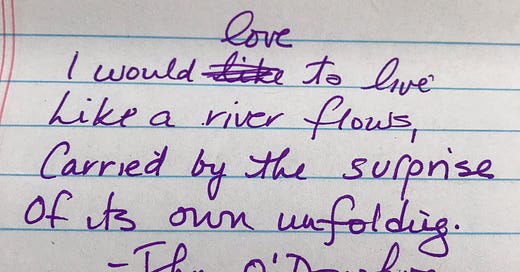 love
I would like to live
Like a river flows,
Carried by the surprise
Of its own unfolding.
- John O'Donohue